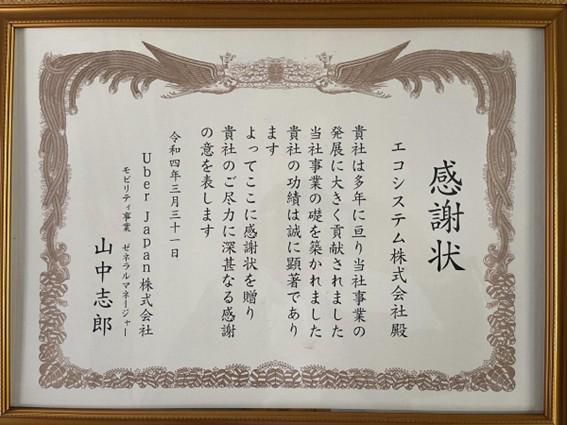 感謝状
エコシステム株式会社 殿
貴社は多年に亘り当社事業の
発展に大きく貢献されました
当社事業の礎を築かれました
貴社の功績は誠に顕著であり
ます
よってここに感謝状を贈り
貴社のご尽力に深甚なる感謝
の意を表します
令和四年三月三十一日
Uber Japan株式会社
モビリティ事業 ゼネラルマネージャー
山中志郎